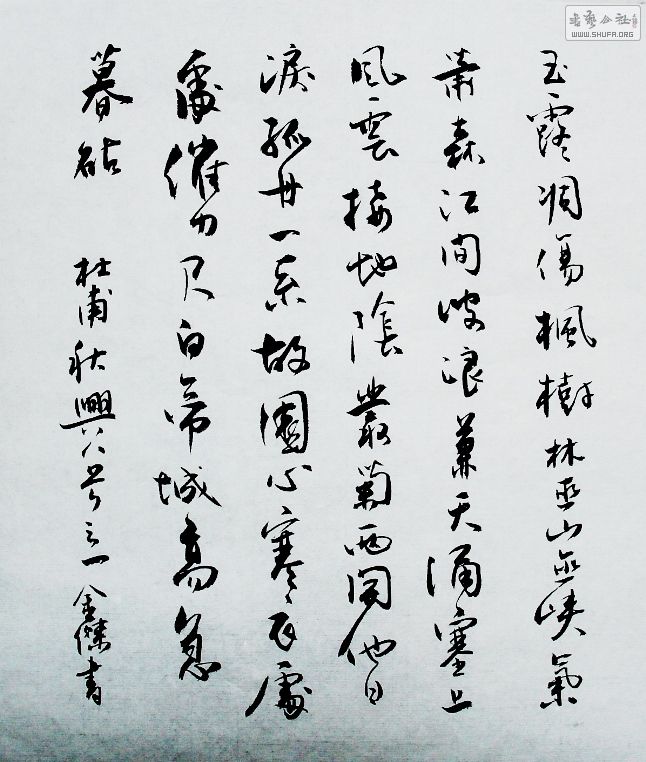 書藝公社
WWW.SHUFA.ORG
玉露凋傷楓樹林巫山巫峡氣
蕭森江間波浪兼天涌塞上
風雲接地陰叢菊两開他日
淚孤舟一系故園心寒衣處
處催刀尺白帝城高急
暮砧 杜甫秋興八首之一 金傑書